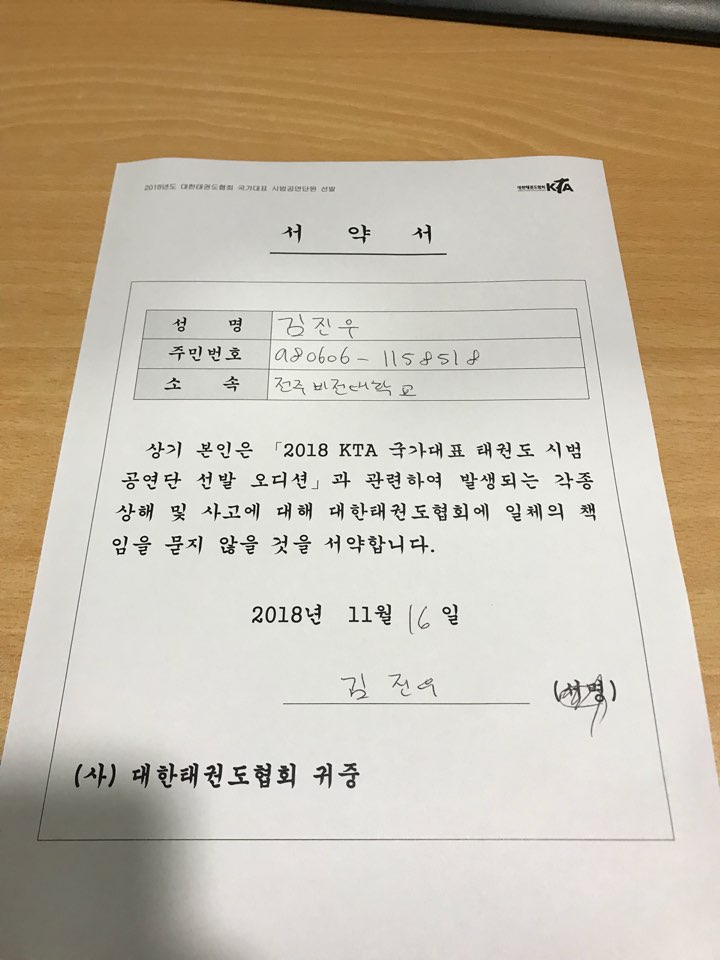 2018년도 대한태권도협회 국가대표 시범공연단원 선발
대한태권도협회 KTA
서 약 서
성 명 김진우
주민번호 980606-1158518
소 속 전주비전대학교
상기 본인은 「2018 KTA 국가대표 태권도 시범
공연단 선발 오디션」과 관련하여 발생되는 각종
상해 및 사고에 대해 대한태권도협회에 일체의 책
임을 묻지 않을 것을 서약합니다.
2018년 11월 16일
김진우 (서명)
(사) 대한태권도협회 귀중